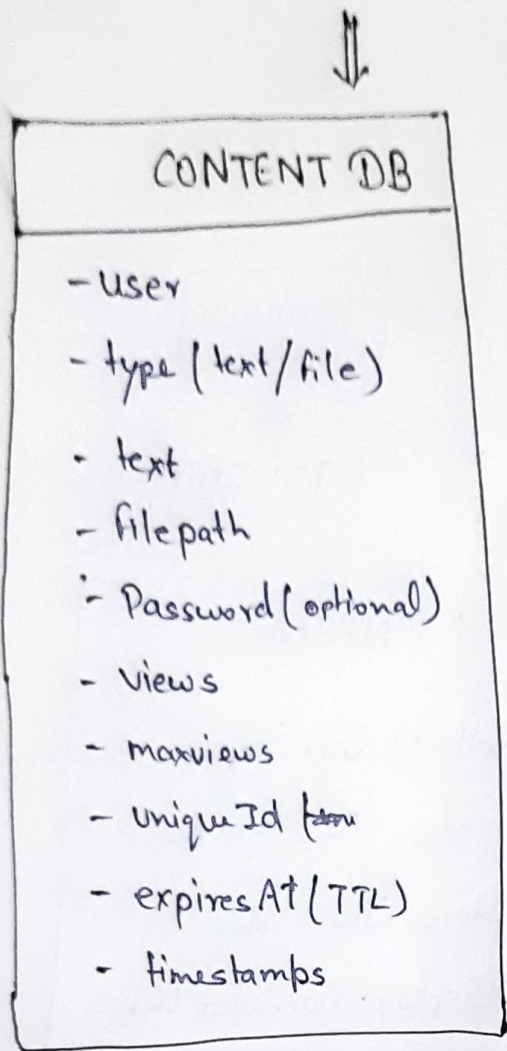 CONTENT DB
- user
- type (text/file)
- text
- filepath
- Password (optional)
- views
- maxviews
- unique Id
- expires At (TTL)
- timestamps